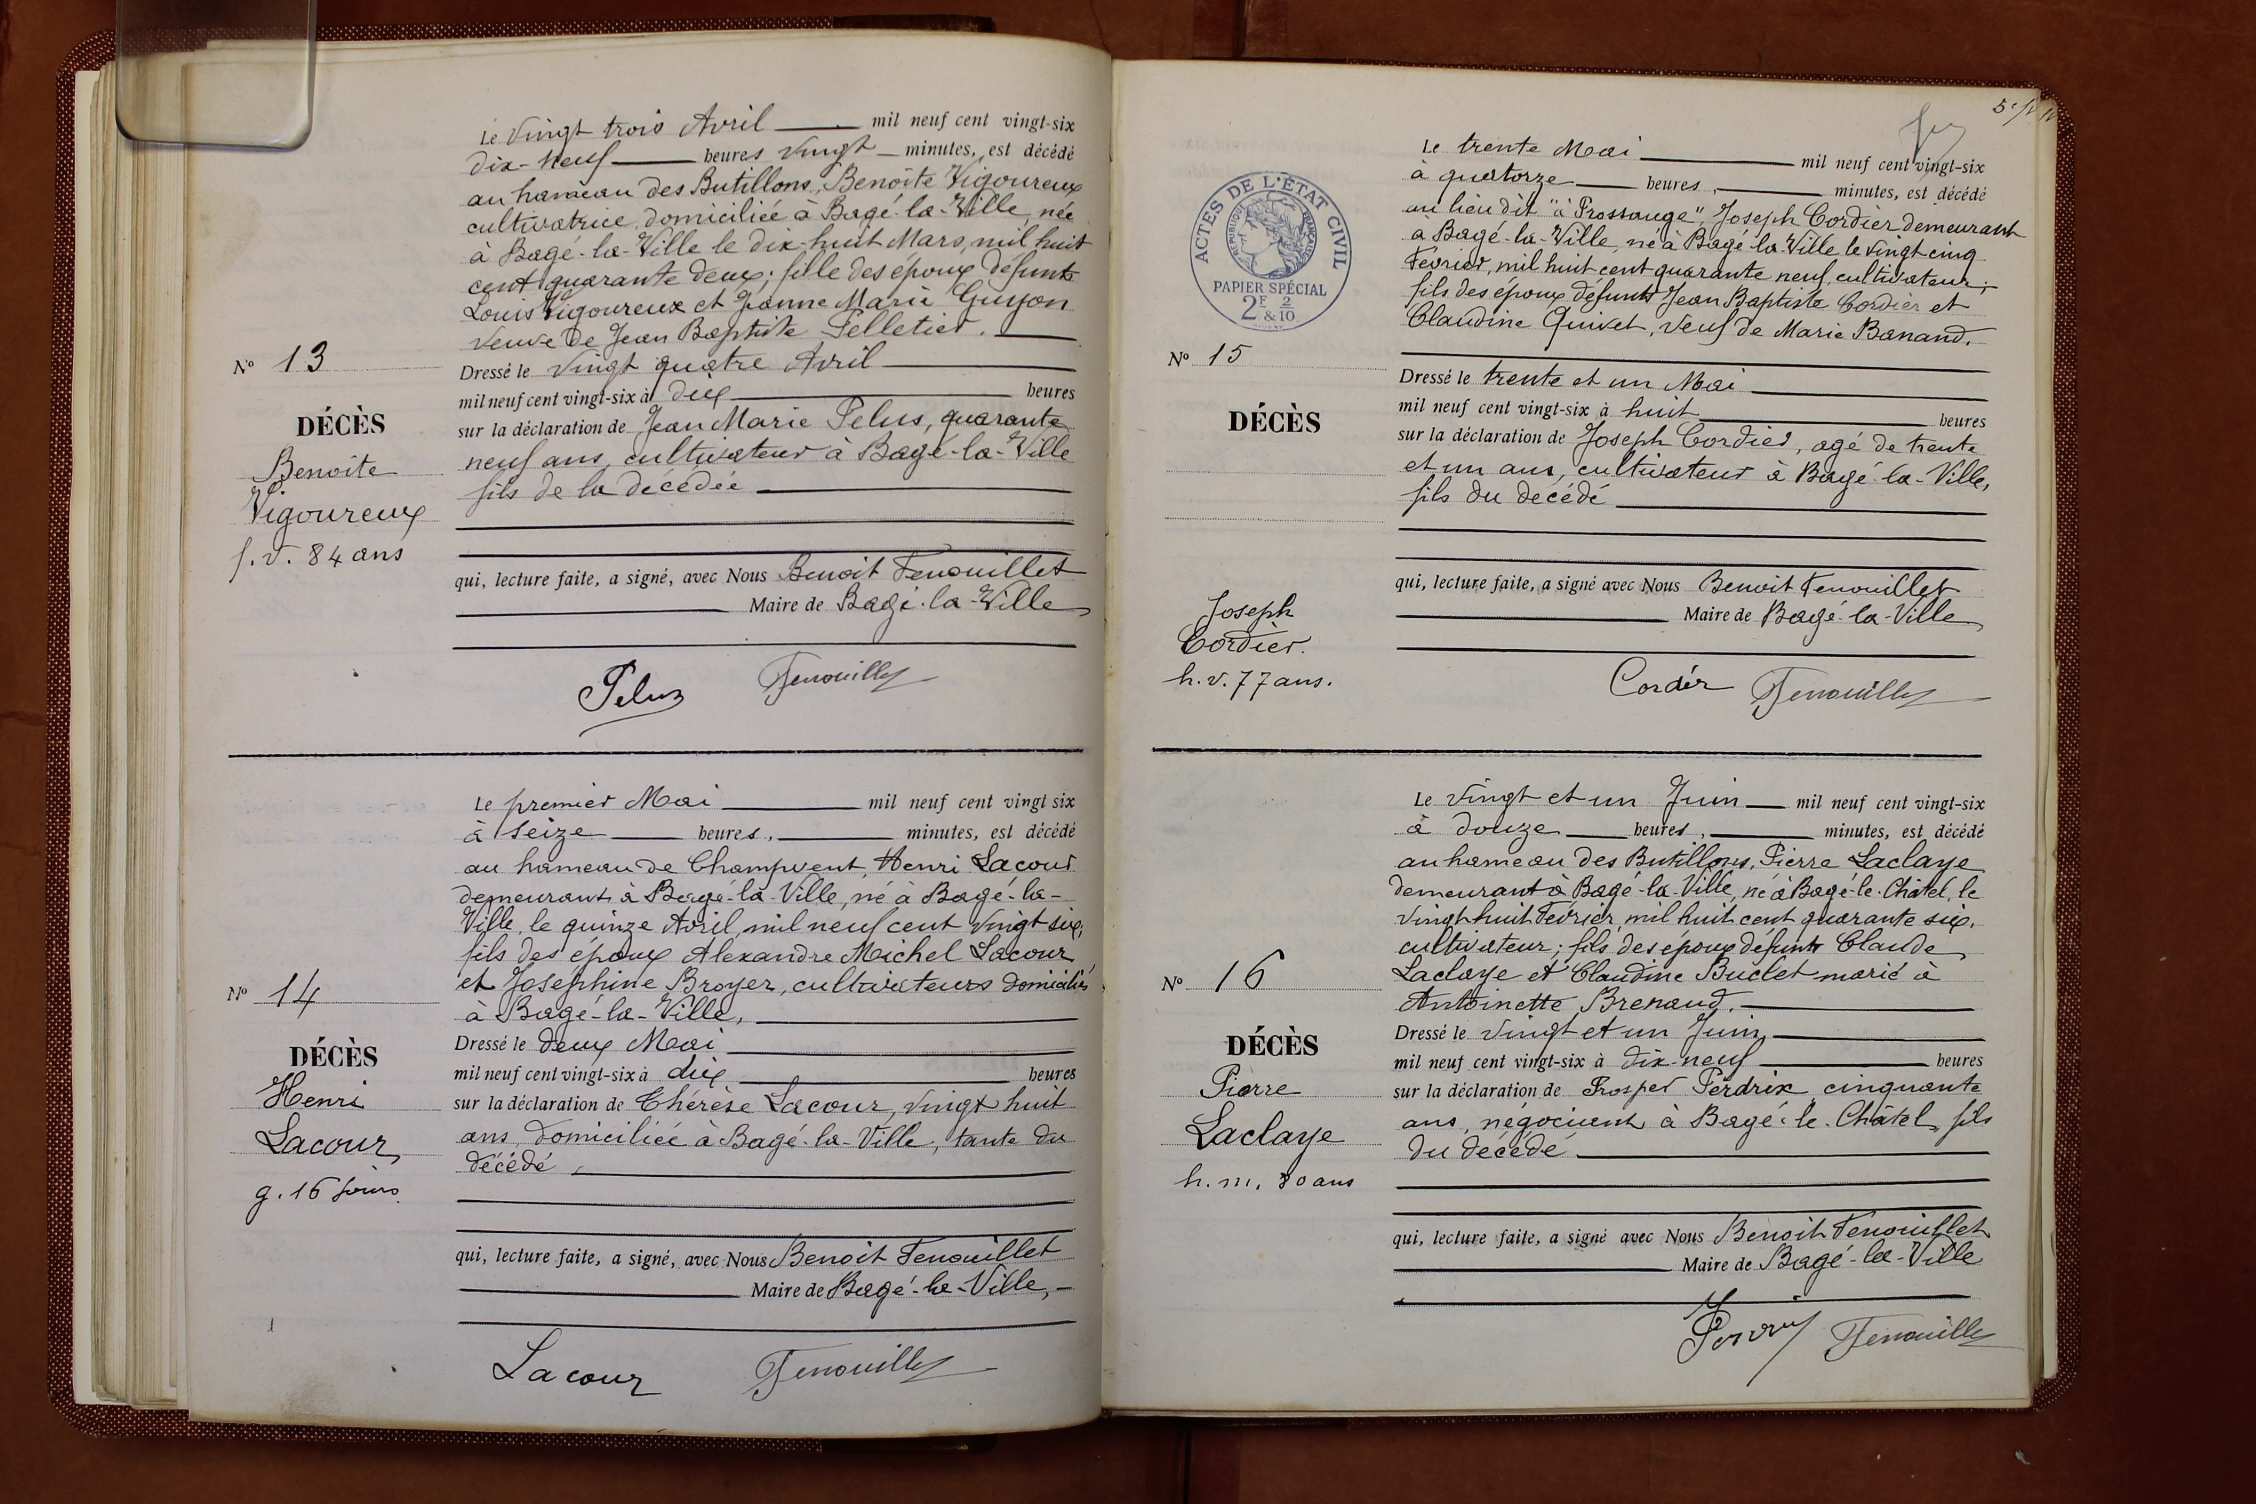 Le vingt trois Avril mil neuf cent vingt-six
dix-neuf heures vingt minutes, est décédé
au hameau des Butillons, Benoîte Vigoureux
cultivatrice, domiciliée à Bagé-la-Ville, née
à Bagé-la-Ville le dix-huit Mars, mil huit
cent quarante deux; fille des époux défunts
Louis Vigoureux et Jeanne Marie Guyon
veuve de Jean Baptiste Pelletier.
N° 13
Dressé le vingt quatre Avril
mil neuf cent vingt-six à dix heures
DÉCÈS
sur la déclaration de Jean Marie Pelus, quarante
Benoîte
neuf ans, cultivateur à Bagé-la-Ville
fils de la décédée
Vigoureux
f. v. 84 ans
qui, lecture faite, a signé, avec Nous Benoit Fenouillet
Maire de Bagé-la-Ville
Pelus Fenouillet
Le premier Mai mil neuf cent vingt six
à seize heures, minutes, est décédé
au hameau de Champvent, Henri Lacour
demeurant à Bagé-la-Ville, né à Bagé-la-
Ville, le quinze Avril, mil neuf cent vingt six,
fils des époux Alexandre Michel Lacour
et Joséphine Broyer, cultivateurs domiciliés
N° 14
à Bagé-la-Ville,
Dressé le deux Mai
DÉCÈS
mil neuf cent vingt-six à dix heures
Henri
sur la déclaration de Thérèse Lacour, vingt huit
Lacour
ans, domiciliée à Bagé-la-Ville, tante du
décédé,
g. 16 jours
qui, lecture faite, a signé, avec Nous Benoit Fenouillet
Maire de Bagé-la-Ville,
Lacour Fenouillet
ACTES DE L'ÉTAT CIVIL
RÉPUBLIQUE FRANÇAISE
PAPIER SPÉCIAL
2F & 2/10
Le trente Mai mil neuf cent vingt-six
à quatorze heures, minutes, est décédé
au lieu dit "à Prossange", Joseph Cordier demeurant
a Bagé-la-Ville, né à Bagé-la-Ville le vingt cinq
Février, mil huit cent quarante neuf, cultivateur;
fils des époux défunts Jean Baptiste Cordier et
Claudine Quivet, veuf de Marie Banand.
N° 15
Dressé le trente et un Mai
DÉCÈS
mil neuf cent vingt-six à huit heures
sur la déclaration de Joseph Cordier, agé de trente
et un ans, cultivateur à Bagé-la-Ville,
fils du décédé
qui, lecture faite, a signé avec Nous Benoit Fenouillet
Maire de Bagé-la-Ville
Joseph
Cordier.
h. v. 77 ans.
Cordier Fenouillet
Le vingt et un Juin mil neuf cent vingt-six
à douze heures, minutes, est décédé
au hameau des Butillons, Pierre Laclaye
demeurant à Bagé-la-Ville, né à Bagé-le-Châtel, le
vingt huit Février, mil huit cent quarante six,
cultivateur; fils des époux défunts Claude
Laclaye et Claudine Buclet marié à
N° 16
Antoinette Brenaud.
Dressé le vingt et un Juin,
DÉCÈS
mil neuf cent vingt-six à dix-neuf heures
Pierre
sur la déclaration de Prosper Perdrix cinquante
ans, négociant à Bagé-le-Châtel, fils
Laclaye
du décédé
h. m. 80 ans
qui, lecture faite, a signé avec Nous Benoit Fenouillet
Maire de Bagé-la-Ville
Fenouillet